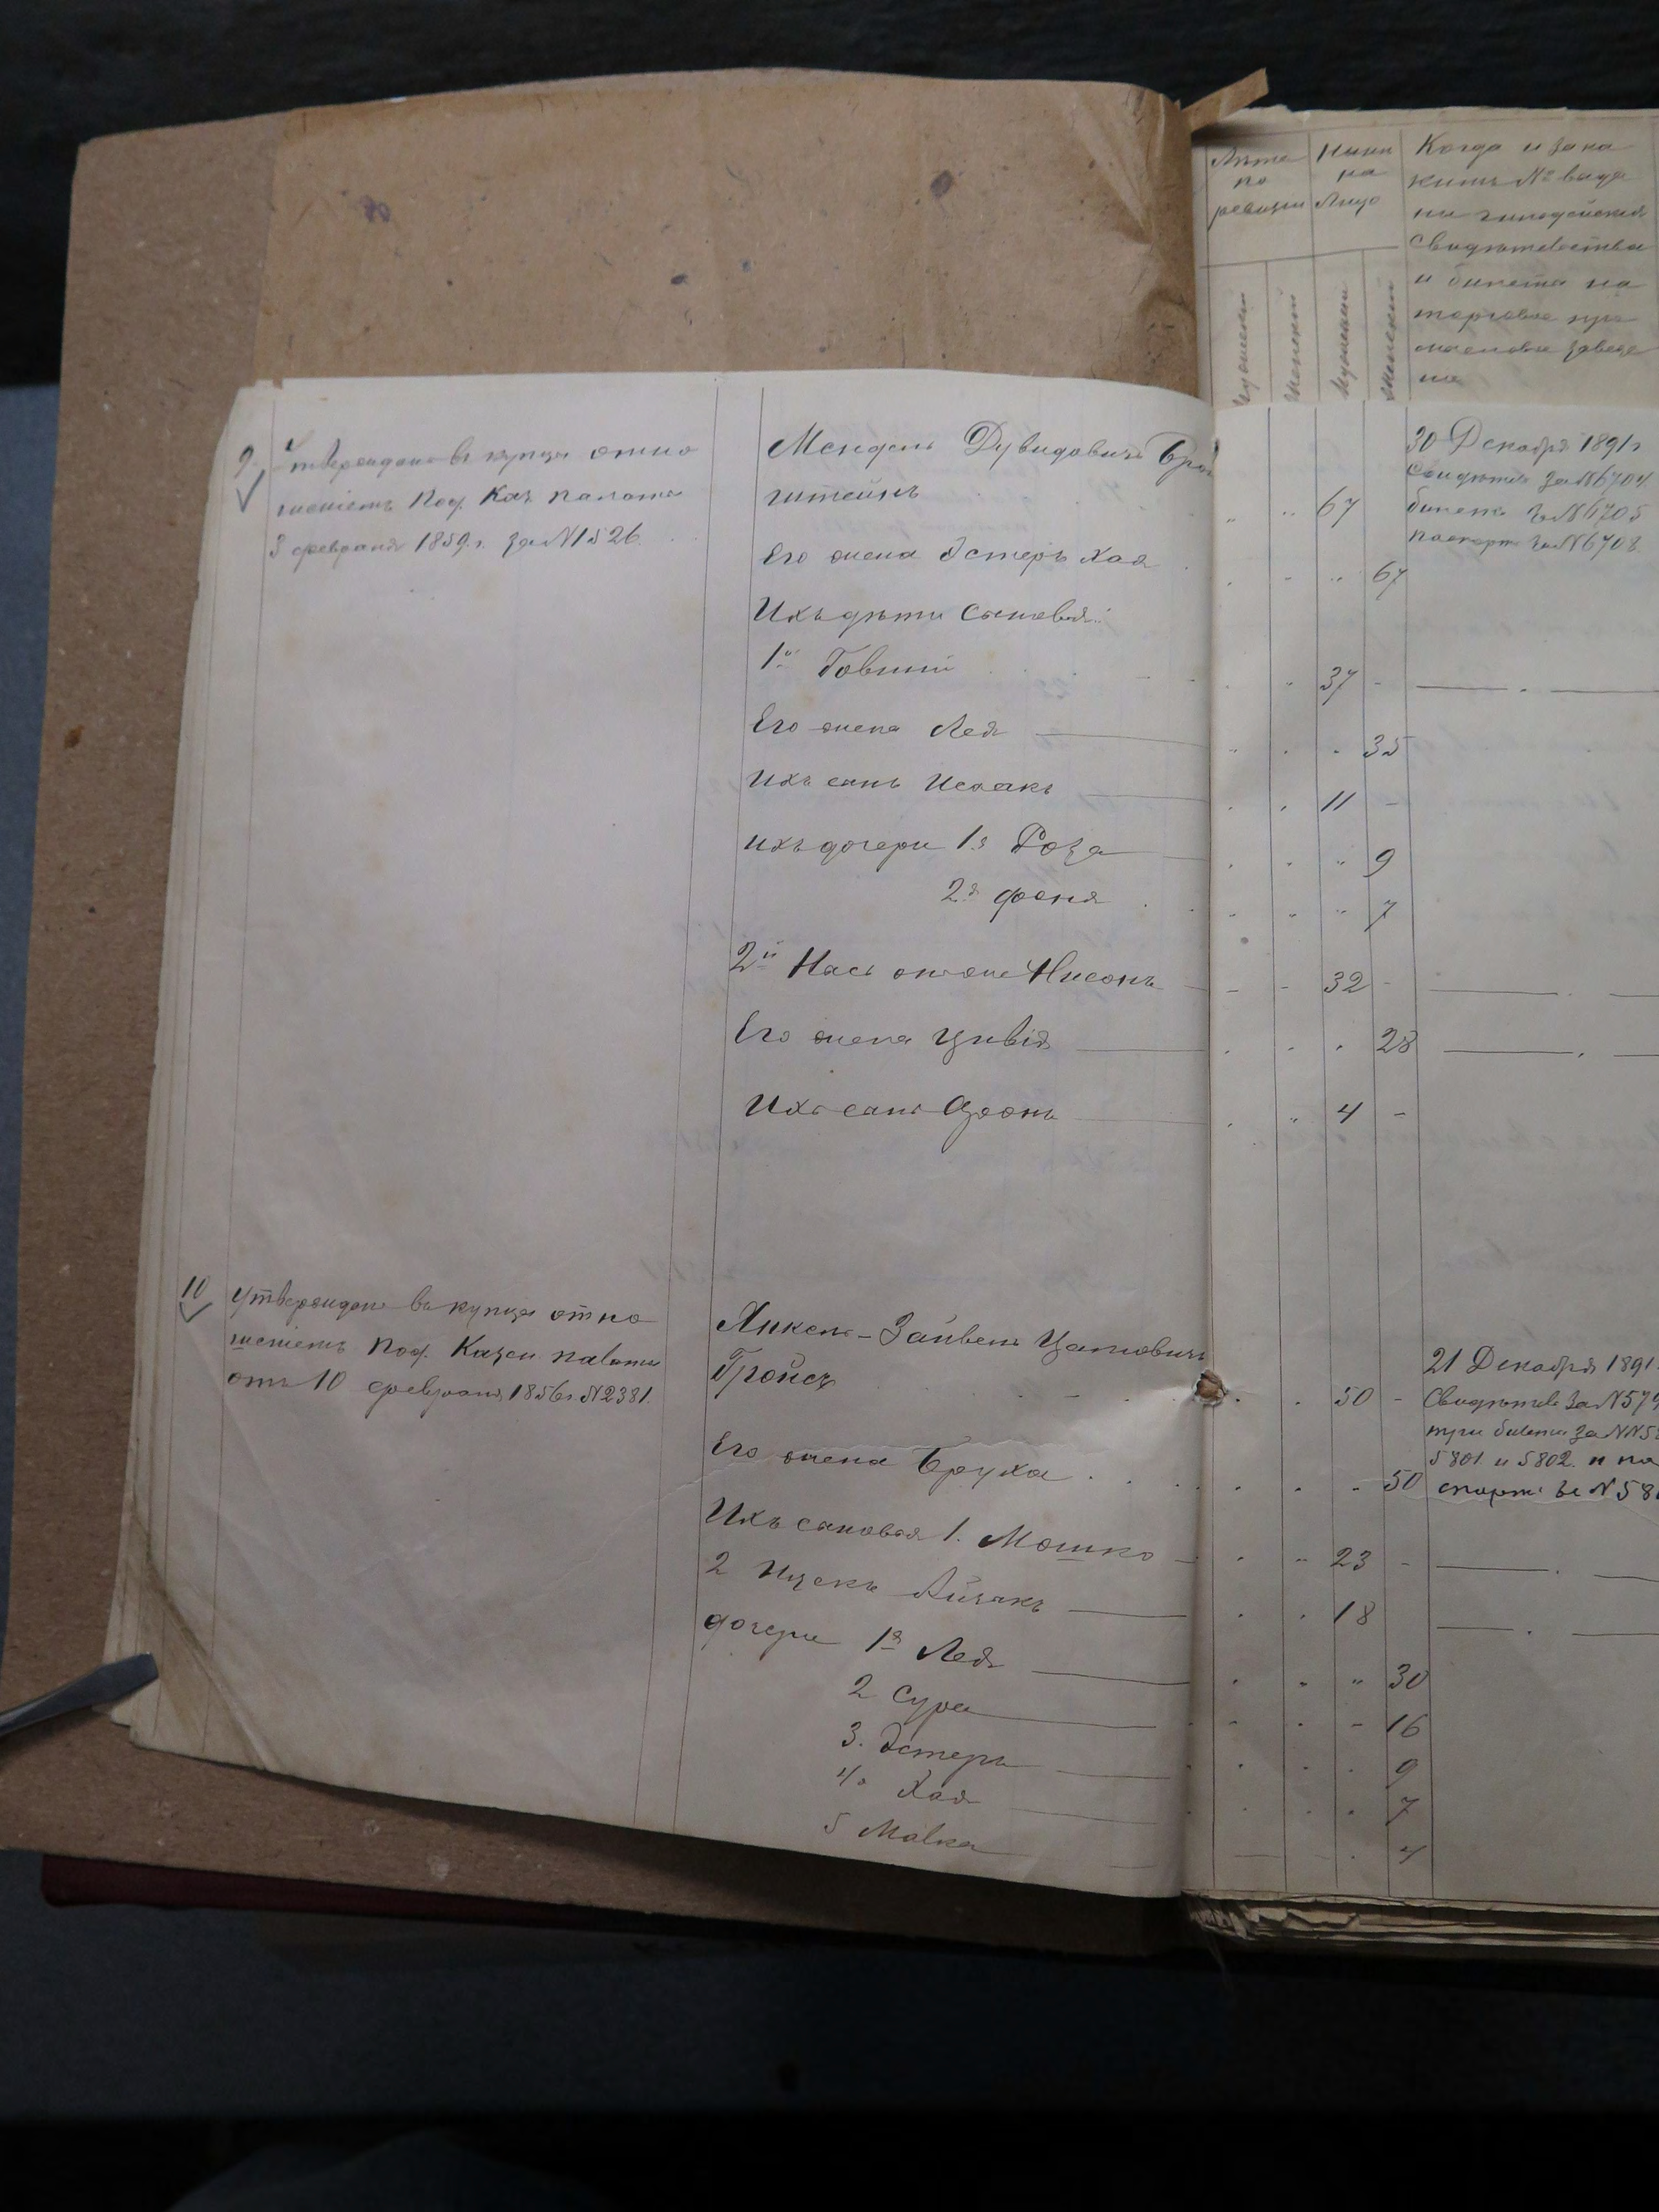 Лѣта по ревизіи
Нынѣ на лицо
Когда и за ка
кимъ № выда
ны гильдейскія
свидѣтельства
и билеты на
торговое про
мысловое заведе
ніе
Мужескій
Женскій
Мужескій
Женскій
9. Утвержденъ въ купцы отно
шеніемъ Под. Каз. Палаты
3 февраля 1859 г. за № 1526.
Мендель Дувидовичъ Брон
штейнъ 67
30 Декабря 1891 г
Свидѣтел. за № 6704
билетъ за № 6705
паспортъ за № 6708.
Его жена Эстеръ Хая 67
Ихъ дѣти сыновья:
1й Товшій 37
Его жена Лея 35
Ихъ сынъ Исаакъ 11
ихъ дочери 1я Роза 9
2я Феня 7
2й Нисонъ 32
Его жена Цивія 28
Ихъ сынъ Аронъ 4
10 Утвержденъ въ купцы отно
шеніемъ Под. Казен. Палаты
отъ 10 февраля 1856 г № 2381.
Янкель-Зайвель
Гройсъ 50
21 Декабря 1891
Свидѣтел за № 579
три билета за №№ 58
5801 и 5802. и па
спортъ за № 58
Его жена Бруха 50
Ихъ сыновья 1. Мошко 23
2 Ицекъ Айзикъ 18
дочери 1я Лея 30
2 Сура 16
3. Эстеръ 9
4. Хая 7
5 Малка 4